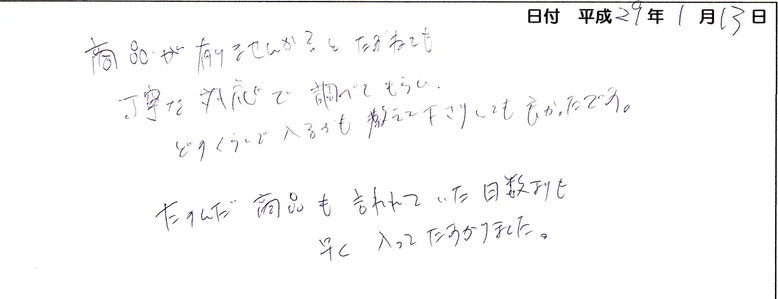 日付 平成29年1月13日
商品が有りませんか?とたずねても
丁寧な対応で調べてもらい、
どのくらいで入るかも教えて下さりとても良かったです。
たのんだ商品も言われていた日数よりも
早く入ってたすかりました。